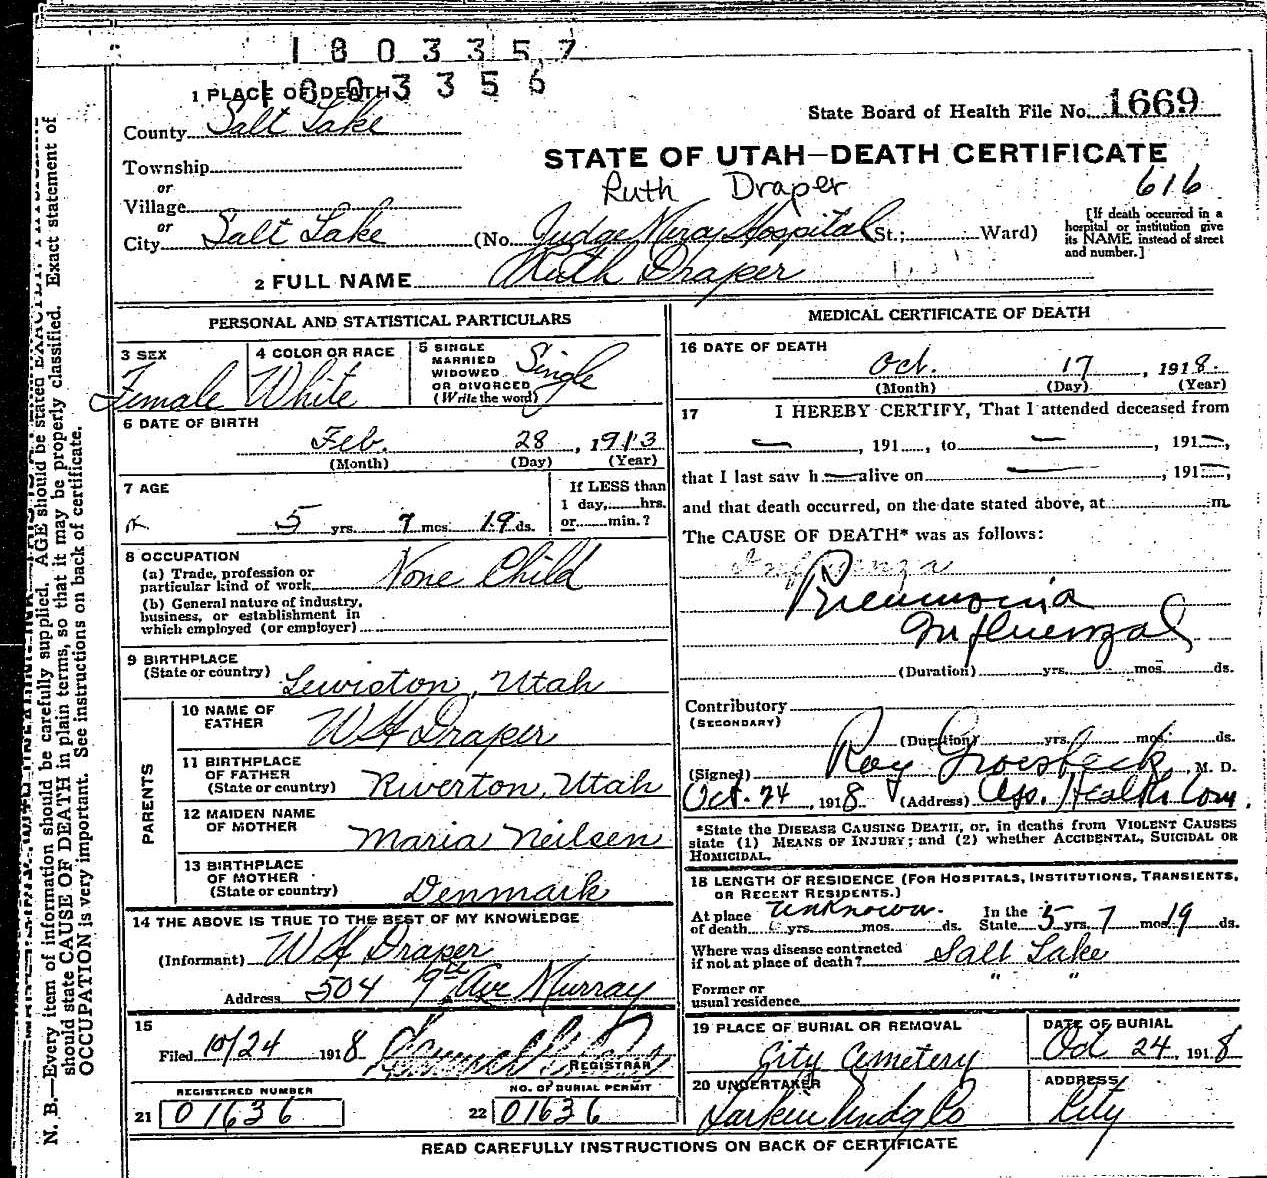 1803357
1803356
1 PLACE OF DEATH
State Board of Health File No. 1669
County Salt Lake
STATE OF UTAH—DEATH CERTIFICATE
Township
or
Ruth Draper
616
Village
or
City Salt Lake (No. Judge Mercy Hospital St.; Ward)
[If death occurred in a hospital or institution give its NAME instead of street and number.]
2 FULL NAME Ruth Draper
PERSONAL AND STATISTICAL PARTICULARS
3 SEX
Female
4 COLOR OR RACE
White
5 SINGLE
MARRIED
WIDOWED
OR DIVORCED
(Write the word)
Single
6 DATE OF BIRTH
Feb. 28, 1913
(Month) (Day) (Year)
7 AGE
5 yrs. 7 mos. 19 ds.
If LESS than
1 day, hrs.
or min.?
8 OCCUPATION
(a) Trade, profession or
particular kind of work None Child
(b) General nature of industry,
business, or establishment in
which employed (or employer)
9 BIRTHPLACE
(State or country) Lewiston, Utah
PARENTS
10 NAME OF
FATHER W H Draper
11 BIRTHPLACE
OF FATHER
(State or country) Riverton, Utah
12 MAIDEN NAME
OF MOTHER Maria Neilsen
13 BIRTHPLACE
OF MOTHER
(State or country) Denmark
14 THE ABOVE IS TRUE TO THE BEST OF MY KNOWLEDGE
(Informant) W H Draper
Address 504 9th Ave Murray
15
Filed 10/24 1918
REGISTRAR
REGISTERED NUMBER
21 01636
NO. OF BURIAL PERMIT
22 01636
MEDICAL CERTIFICATE OF DEATH
16 DATE OF DEATH
Oct. 17, 1918.
(Month) (Day) (Year)
17 I HEREBY CERTIFY, That I attended deceased from
— , 191 , to — , 191—,
that I last saw h— alive on — , 191—,
and that death occurred, on the date stated above, at m.
The CAUSE OF DEATH* was as follows:
Influenza
Pneumonia
Influenzal
(Duration) yrs. mos. ds.
Contributory
(SECONDARY)
(Duration) yrs. mos. ds.
(Signed) Roy Groesbeck, M. D.
Oct. 24, 1918 (Address) Ass. Health Com.
*State the DISEASE CAUSING DEATH, or, in deaths from VIOLENT CAUSES
state (1) MEANS OF INJURY; and (2) whether ACCIDENTAL, SUICIDAL OR
HOMICIDAL.
18 LENGTH OF RESIDENCE (FOR HOSPITALS, INSTITUTIONS, TRANSIENTS,
OR RECENT RESIDENTS.)
At place
of death unknown. yrs. mos. ds.
In the
State 5 yrs. 7 mos. 19 ds.
Where was disease contracted
if not at place of death? Salt Lake
Former or
usual residence " "
19 PLACE OF BURIAL OR REMOVAL
City Cemetery
DATE OF BURIAL
Oct 24, 1918
20 UNDERTAKER
Larkin Undg Co
ADDRESS
City
READ CAREFULLY INSTRUCTIONS ON BACK OF CERTIFICATE
N. B.—Every item of information should be carefully supplied. AGE should be stated EXACTLY.
should state CAUSE OF DEATH in plain terms, so that it may be properly classified. Exact statement of
OCCUPATION is very important. See instructions on back of certificate.